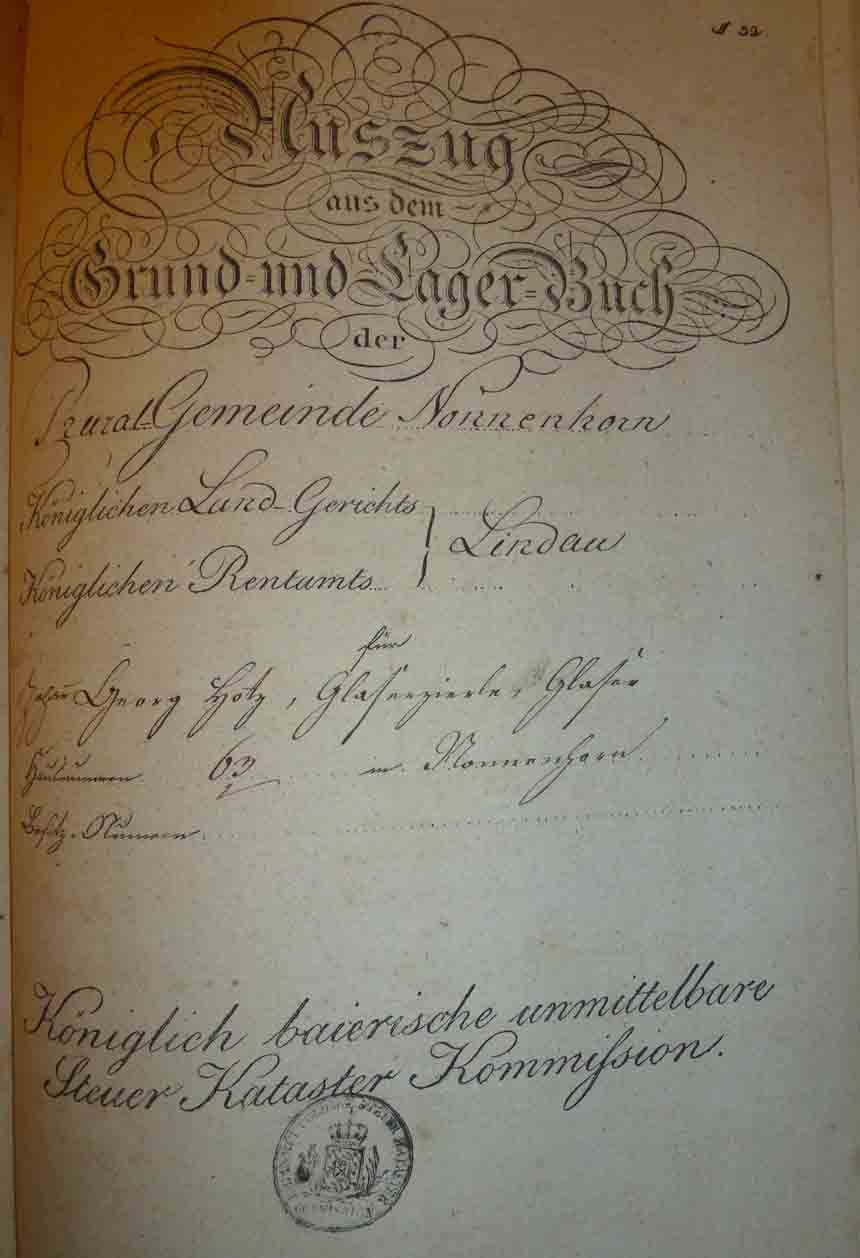 N 32.
Auszug
aus dem
Grund- und Lager-Buch
der
Rural-Gemeinde Nonnenhorn
Königlichen Land-Gerichts
Lindau
Königlichen Rentamts
für
Johan Georg Hotz, Glaserzierle, Glaser
Hausnummern 63 in Nonnenhorn.
Besitz-Nummern
Königlich baierische unmittelbare
Steuer Kataster Kommission.
STEUER KATASTER
COMMISSION